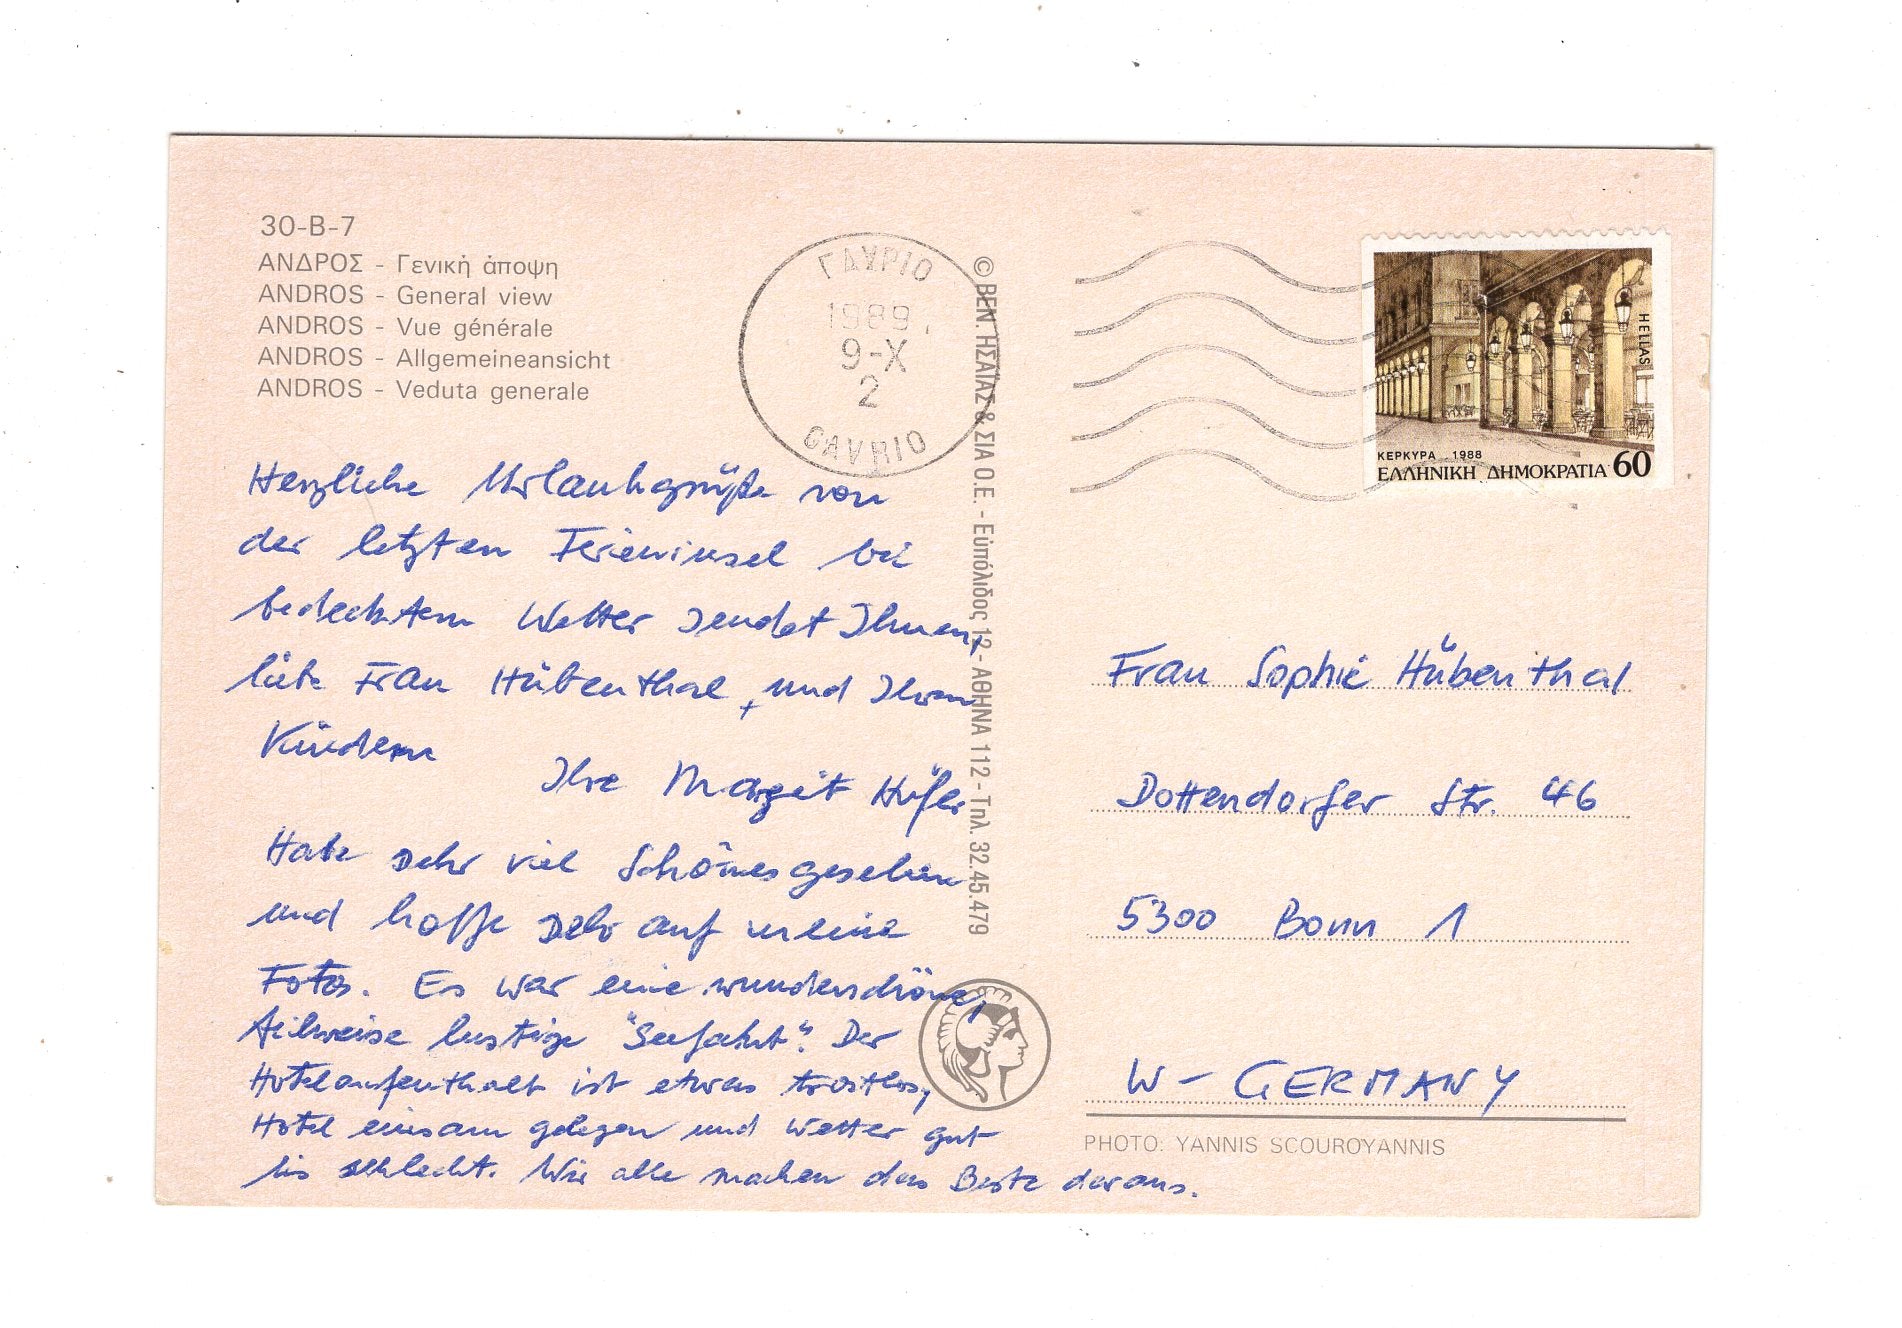 30-B-7
ΑΝΔΡΟΣ - Γενική άποψη
ANDROS - General view
ANDROS - Vue générale
ANDROS - Allgemeineansicht
ANDROS - Veduta generale
ΓΑΥΡΙΟ
1989
9-X
2
GAVRIO
© ΒΕΝ. ΗΣΑΪΑΣ & ΣΙΑ Ο.Ε. - Εὐπόλιδος 12 - ΑΘΗΝΑ 112 - Τηλ. 32.45.479
HELLAS
ΚΕΡΚΥΡΑ 1988
ΕΛΛΗΝΙΚΗ ΔΗΜΟΚΡΑΤΙΑ 60
Herzliche Urlaubsgrüße von
der letzten Ferieninsel bei
bedecktem Wetter sendet Ihnen,
liebe Frau Hübenthal, und Ihren
Kindern
Ihre Margit Höfler
Habe sehr viel Schönes gesehen
und hoffe sehr auf meine
Fotos. Es war eine wunderschöne,
teilweise lustige "Seefahrt". Der
Hotelaufenthalt ist etwas trostlos,
Hotel einsam gelegen und Wetter gut
bis schlecht. Wir alle machen das Beste daraus.
Frau Sophie Hübenthal
Dottendorfer Str. 46
5300 Bonn 1
W - GERMANY
PHOTO: YANNIS SCOUROYANNIS